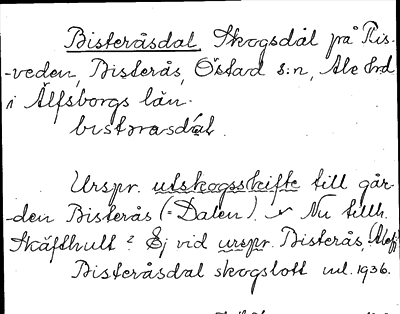 Bisteråsdal Skogsdål på Ris-
-veden, Bisterås, Östad s:n, Ale hrd
i Älfsborgs län.
bistərasdál.
Urspr. utskogsskifte till går-
-den Bisterås (= Dalen). Nu tillh.
Skäfthult? Ej vid urspr. Bisterås.
Bisteråsdal skogslott ml. 1936.